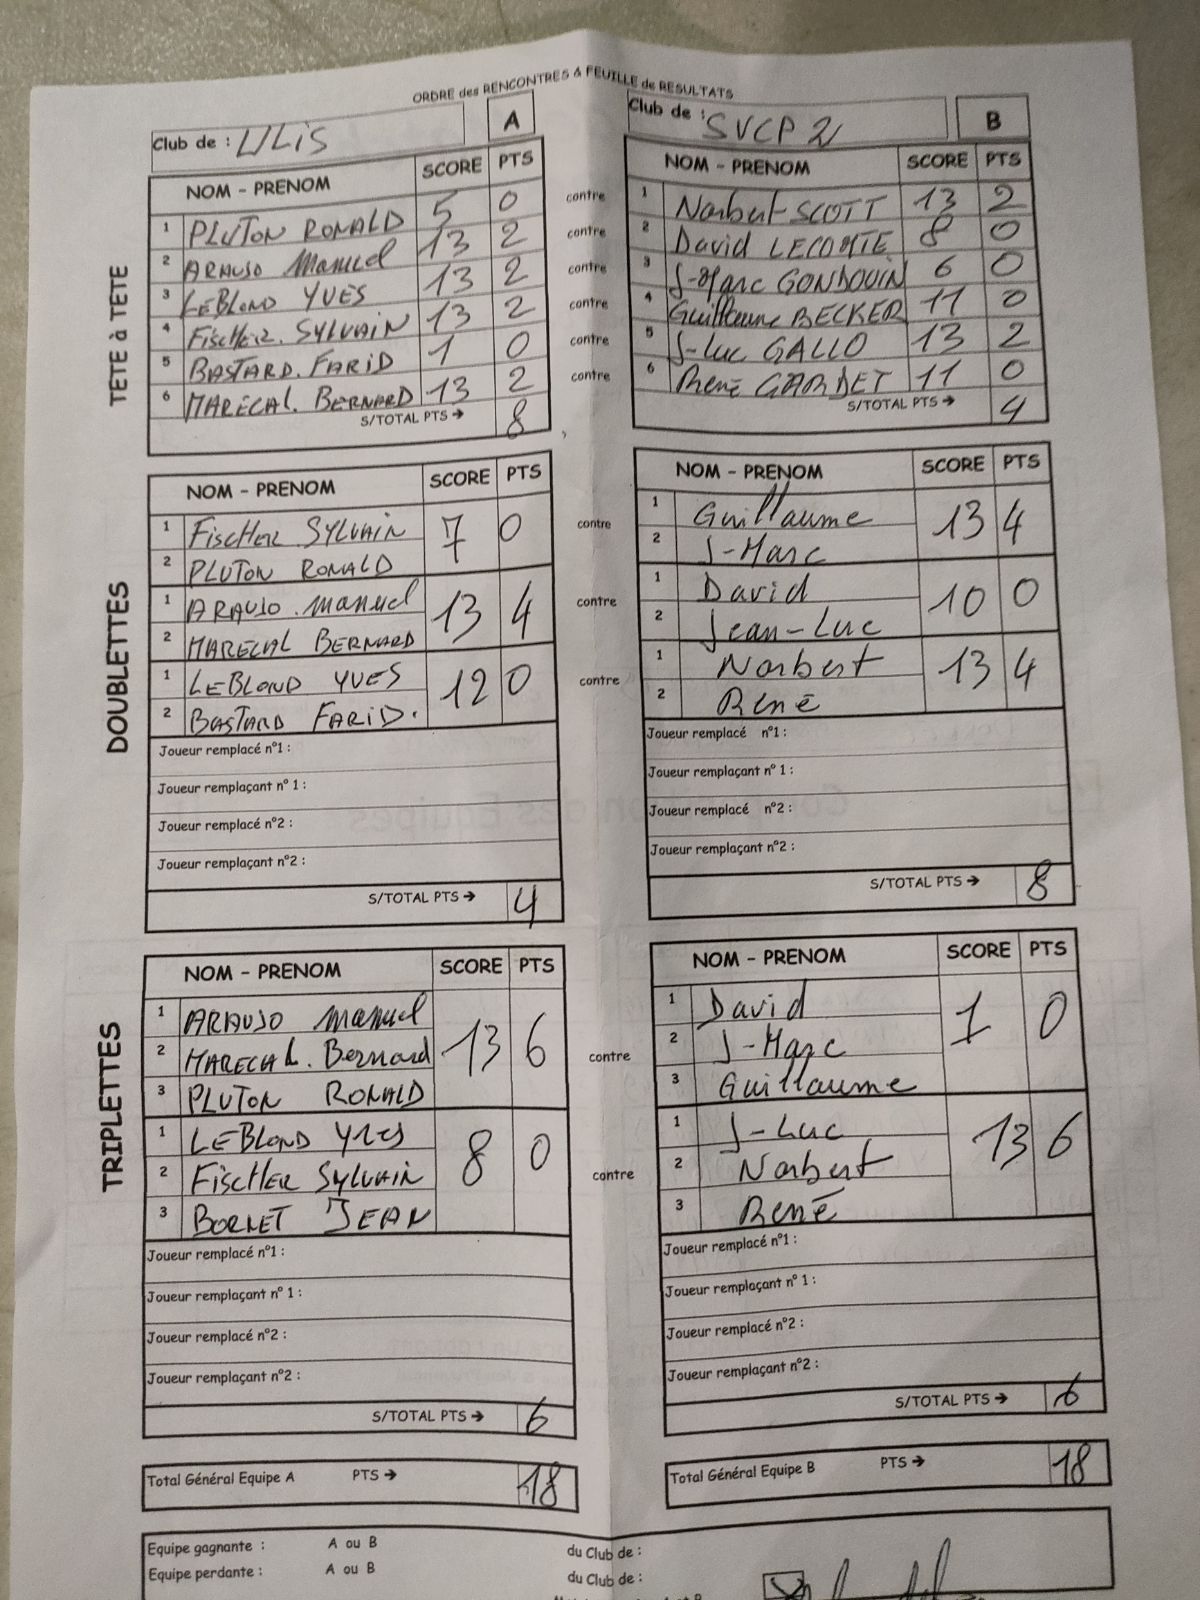 ORDRE des RENCONTRES & FEUILLE de RESULTATS
Club de : ULIS A
NOM - PRENOM SCORE PTS
TETE à TETE
1 PLUTON RONALD 5 0
2 ARAUJO Manuel 13 2
3 LEBLOND YVES 13 2
4 FiscHER. SYLVAIN 13 2
5 BASTARD. FARID 1 0
6 MARECAL. BERNARD 13 2
S/TOTAL PTS → 8
contre
contre
contre
contre
contre
contre
Club de : SVCP 2 B
NOM - PRENOM SCORE PTS
1 Norbert SCOTT 13 2
2 David LECOMTE 8 0
3 J-Marc GONDOUIN 6 0
4 Guillaume BECKER 11 0
5 J-Luc GALLO 13 2
6 René GARDET 11 0
S/TOTAL PTS → 4
DOUBLETTES
NOM - PRENOM SCORE PTS
1 FiscHER SYLVAIN 7 0
2 PLUTON RONALD
1 ARAUJO. Manuel 13 4
2 MARECAL BERNARD
1 LEBLOND YVES 12 0
2 BASTARD FARID.
Joueur remplacé n°1 :
Joueur remplaçant n° 1 :
Joueur remplacé n°2 :
Joueur remplaçant n°2 :
S/TOTAL PTS → 4
contre
contre
contre
NOM - PRENOM SCORE PTS
1 Guillaume 13 4
2 J-Marc
1 David 10 0
2 Jean-Luc
1 Norbert 13 4
2 René
Joueur remplacé n°1 :
Joueur remplaçant n° 1 :
Joueur remplacé n°2 :
Joueur remplaçant n°2 :
S/TOTAL PTS → 8
TRIPLETTES
NOM - PRENOM SCORE PTS
1 ARAUJO Manuel 13 6
2 MARECAL. Bernard
3 PLUTON RONALD
1 LEBLOND YVES 8 0
2 FiscHER SYLVAIN
3 BORNET JEAN
Joueur remplacé n°1 :
Joueur remplaçant n° 1 :
Joueur remplacé n°2 :
Joueur remplaçant n°2 :
S/TOTAL PTS → 6
contre
contre
NOM - PRENOM SCORE PTS
1 David 1 0
2 J-Marc
3 Guillaume
1 J-Luc 13 6
2 Norbert
3 René
Joueur remplacé n°1 :
Joueur remplaçant n° 1 :
Joueur remplacé n°2 :
Joueur remplaçant n°2 :
S/TOTAL PTS → 6
Total Général Equipe A PTS → 18
Total Général Equipe B PTS → 18
Equipe gagnante : A ou B du Club de :
Equipe perdante : A ou B du Club de :